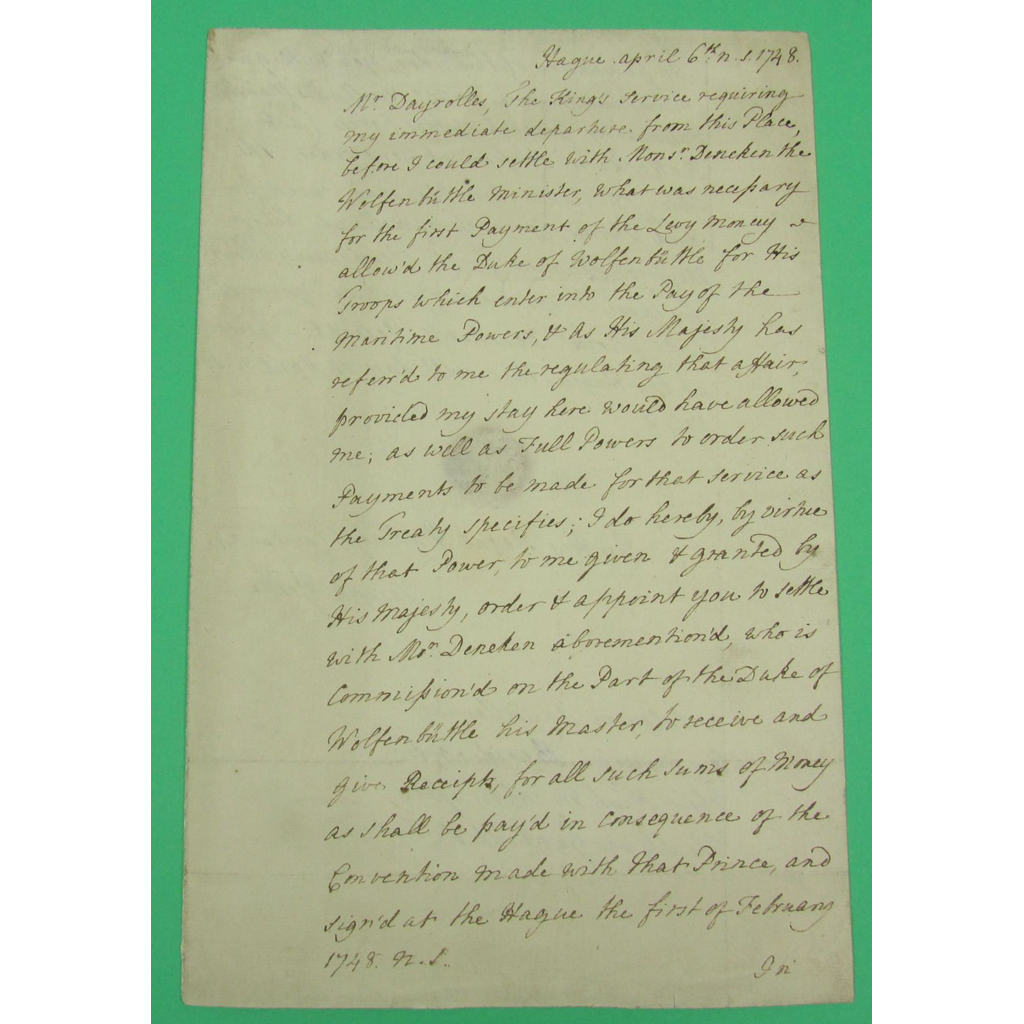 Hague april 6th. n. s. 1748.
Mr. Dayrolles, The King's service requiring
my immediate departure from this Place,
before I could settle with Monsr. Deneken the
Wolfenbüttle Minister, what was necessary
for the first Payment of the Levy Money
allow'd the Duke of Wolfenbüttle for His
Troops which enter into the Pay of the
Maritime Powers, & As His Majesty has
referr'd to me the regulating that affair,
provided my stay here would have allowed
me; as well as Full Powers to order such
Payments to be made for that service as
the Treaty specifies; I do hereby, by virtue
of that Power, to me given & granted by
His Majesty, order & appoint you to settle
with Mr. Deneken aboremention'd, who is
Commission'd on the Part of the Duke of
Wolfenbüttle his Master, to receive and
give Receipts, for all such sums of Money
as shall be pay'd in consequence of the
Convention made with that Prince, and
sign'd at the Hague the first of February
1748. n. s.
In